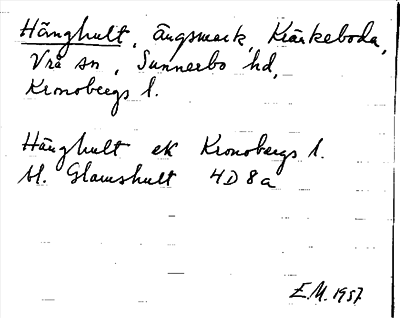 Hänghult, ängsmark, Kärkeboda,
Vrå sn, Sunnerbo hd,
Kronobergs l.
Hänghult ek Kronobergs l.
bl. Glamshult 4D8a
E.M. 1957